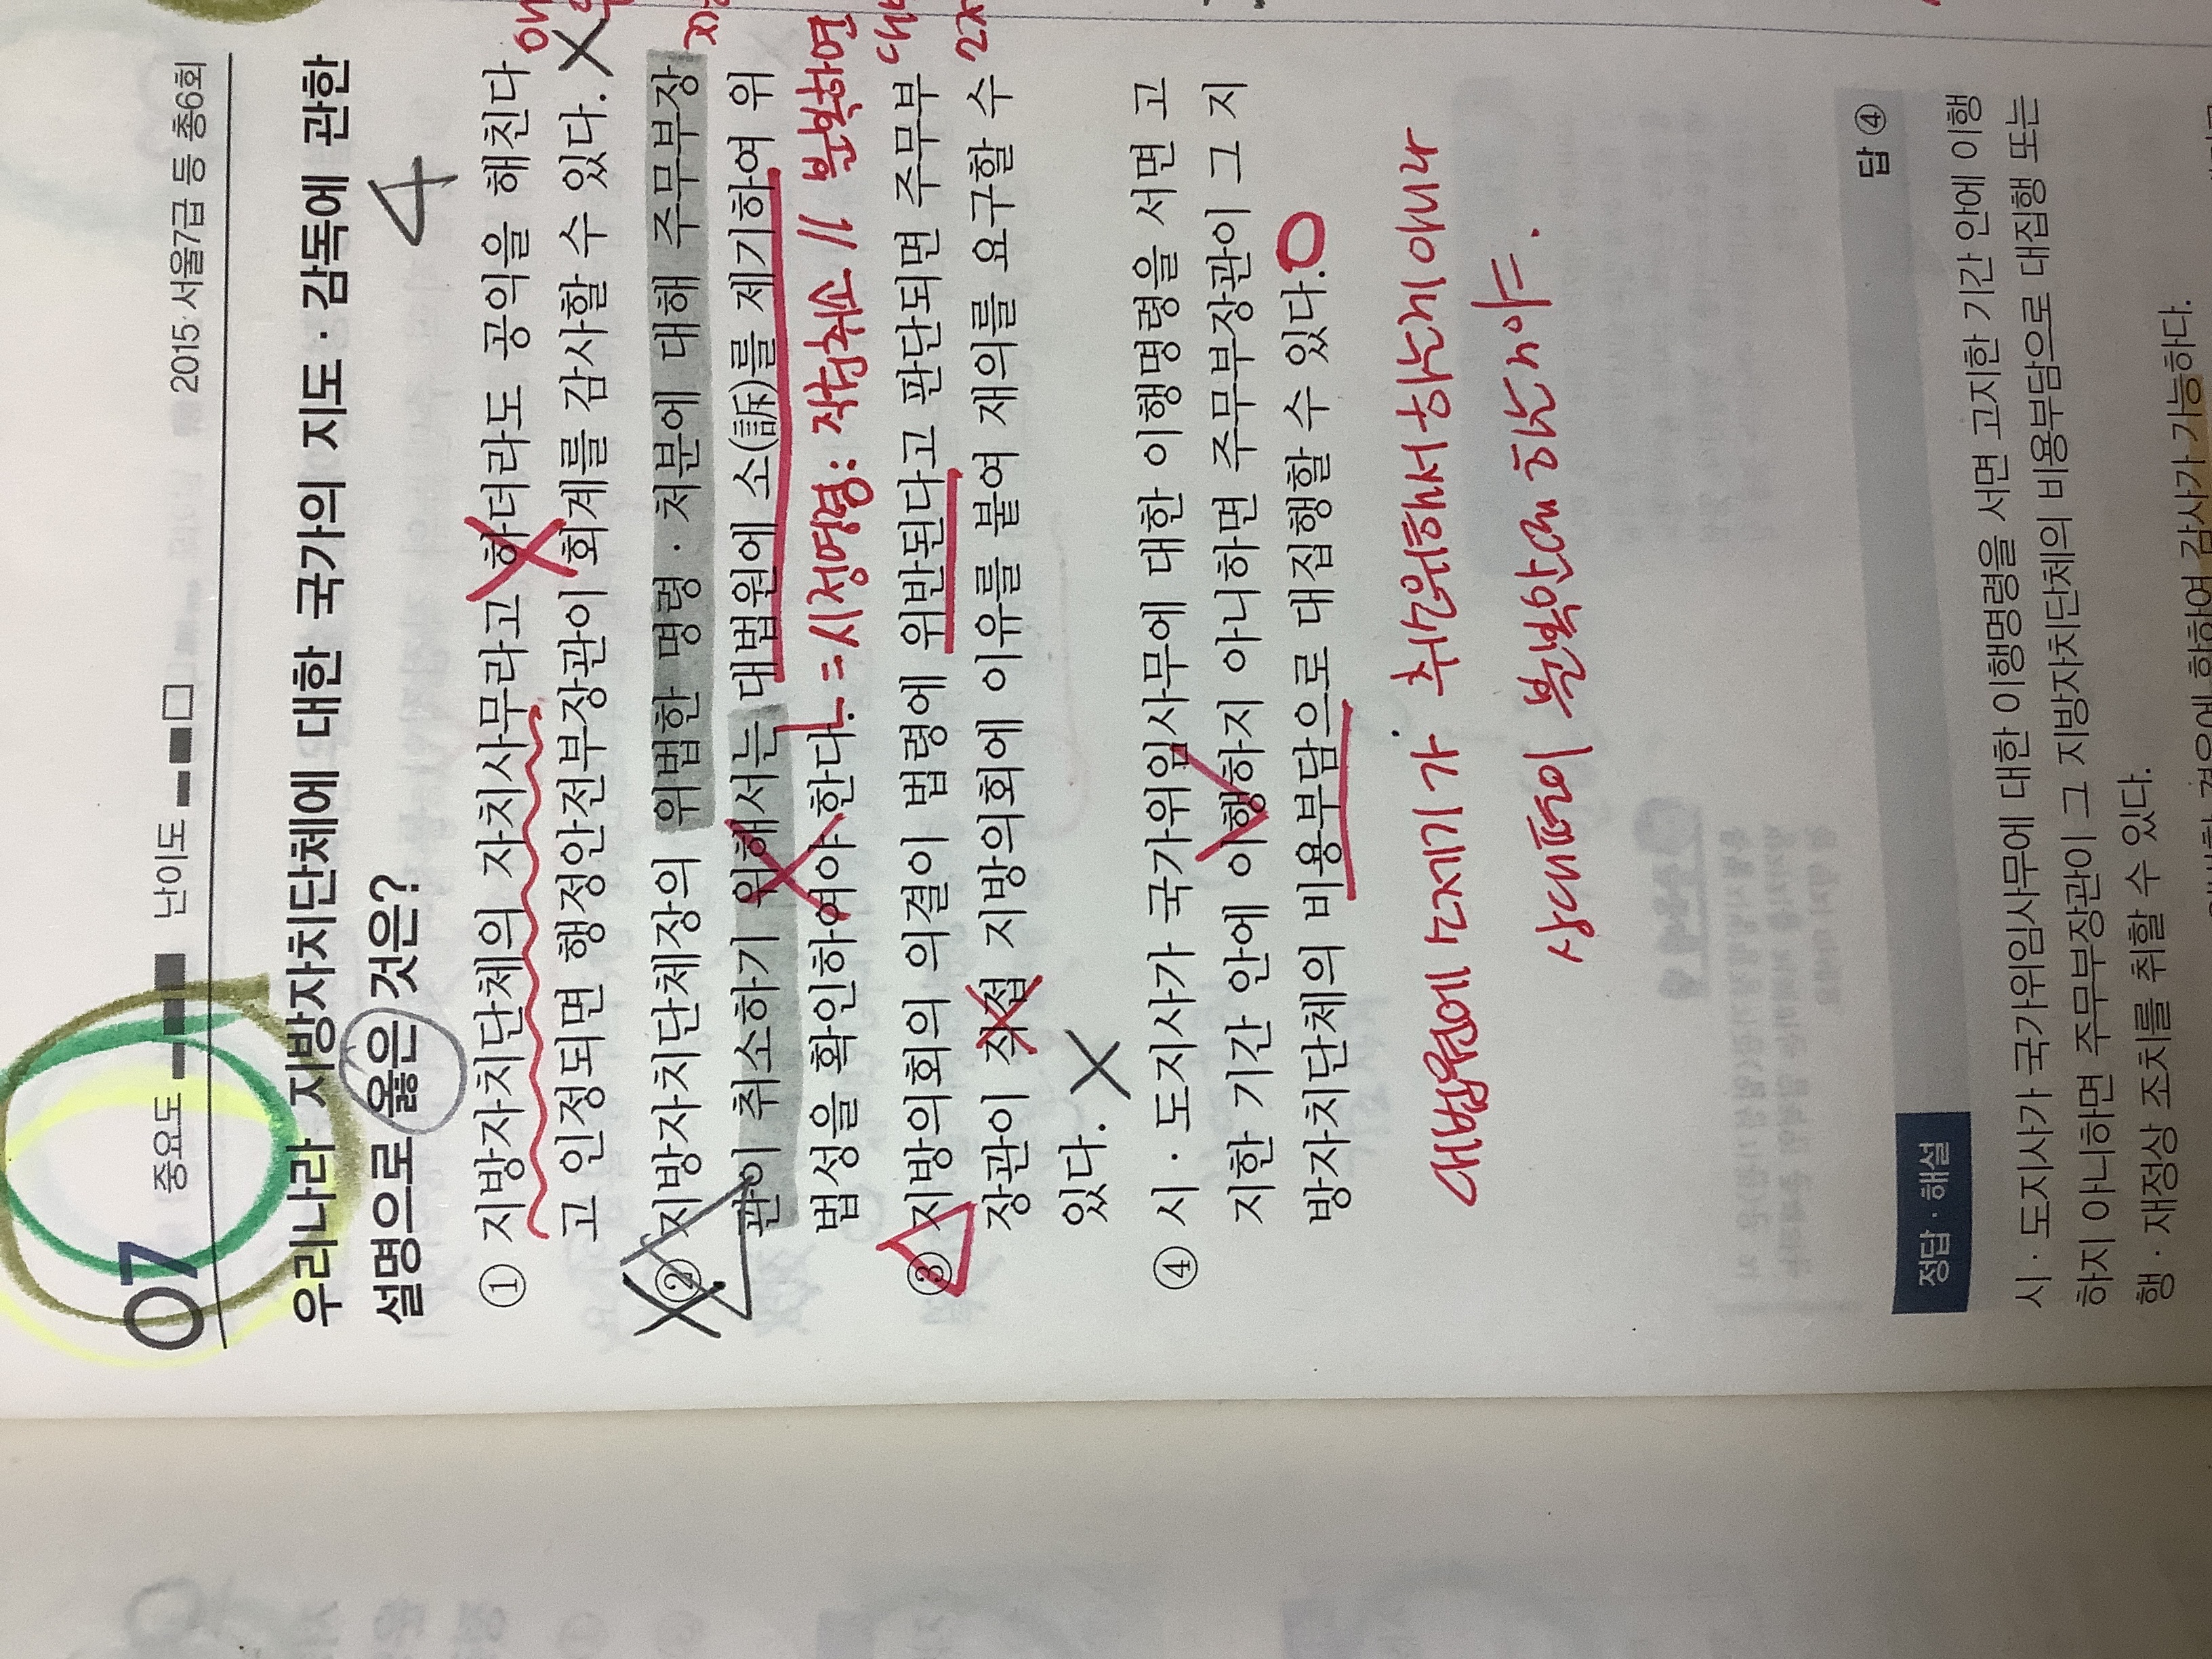 07 중요도 난이도 2015·서울7급 등 총6회
우리나라 지방자치단체에 대한 국가의 지도·감독에 관한
설명으로 옳은 것은?
4
① 지방자치단체의 자치사무라고 하더라도 공익을 해친다
고 인정되면 행정안전부장관이 회계를 감사할 수 있다.
② 지방자치단체장의 위법한 명령·처분에 대해 주무부장
관이 취소하기 위해서는 대법원에 소(訴)를 제기하여 위
법성을 확인하여야 한다.
=시정명령: 직접취소 // 불복하면
③ 지방의회의 의결이 법령에 위반된다고 판단되면 주무부
장관이 직접 지방의회에 이유를 붙여 재의를 요구할 수
있다.
④ 시·도지사가 국가위임사무에 대한 이행명령을 서면 고
지한 기간 안에 이행하지 아니하면 주무부장관이 그 지
방자치단체의 비용부담으로 대집행할 수 있다.
대법원에 소제기가 취소위해서 하는게 아니라
상대편이 불복할때 하는거야.
정답·해설 답 ④
시·도지사가 국가위임사무에 대한 이행명령을 서면 고지한 기간 안에 이행
하지 아니하면 주무부장관이 그 지방자치단체의 비용부담으로 대집행 또는
행·재정상 조치를 취할 수 있다.
경우에 한하여 감사가 가능하다.